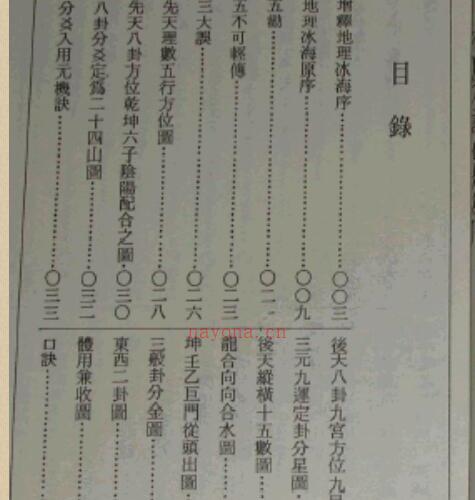 目錄
增釋地理冰海序⋯⋯〇〇三
地理冰海原序⋯⋯〇〇九
五勸⋯⋯〇二
五不可輕傳⋯⋯〇二三
三大誤⋯⋯〇二六
先天理數五行方位圖⋯⋯〇二八
先天八卦方位乾坤六子陰陽配合之圖⋯⋯〇三〇
八卦分爻定為二十四山圖⋯⋯〇三二
分爻入用元機訣⋯⋯〇三三
後天八卦九宮方位九
三元九運定卦分星圖
後天縱橫十五數圖
龍合向向合水圖
坤壬乙巨門從頭出圖
三般卦分金圖
東西二卦圖
體用兼收圖
口訣
nayona.cn